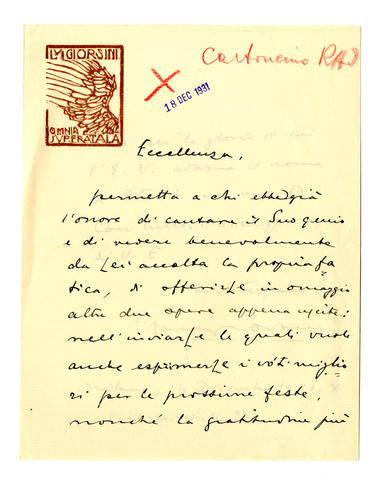 LVIGI ORSINI
OMNIA
SVPERAT ALA
Cartoncino RAS
18 DEC 1931
Eccellenza,
permetta a chi ebbe già
l'onore di cantare il Suo genio
e di vedere benevolmente
da Lei accolta la propria fa=
tica, di offerirLe in omaggio
altre due opere appena uscite:
nell'inviarLe le quali vuole
anche esprimerLe i vóti miglio=
ri per le prossime feste,
nonché la gratitudine più